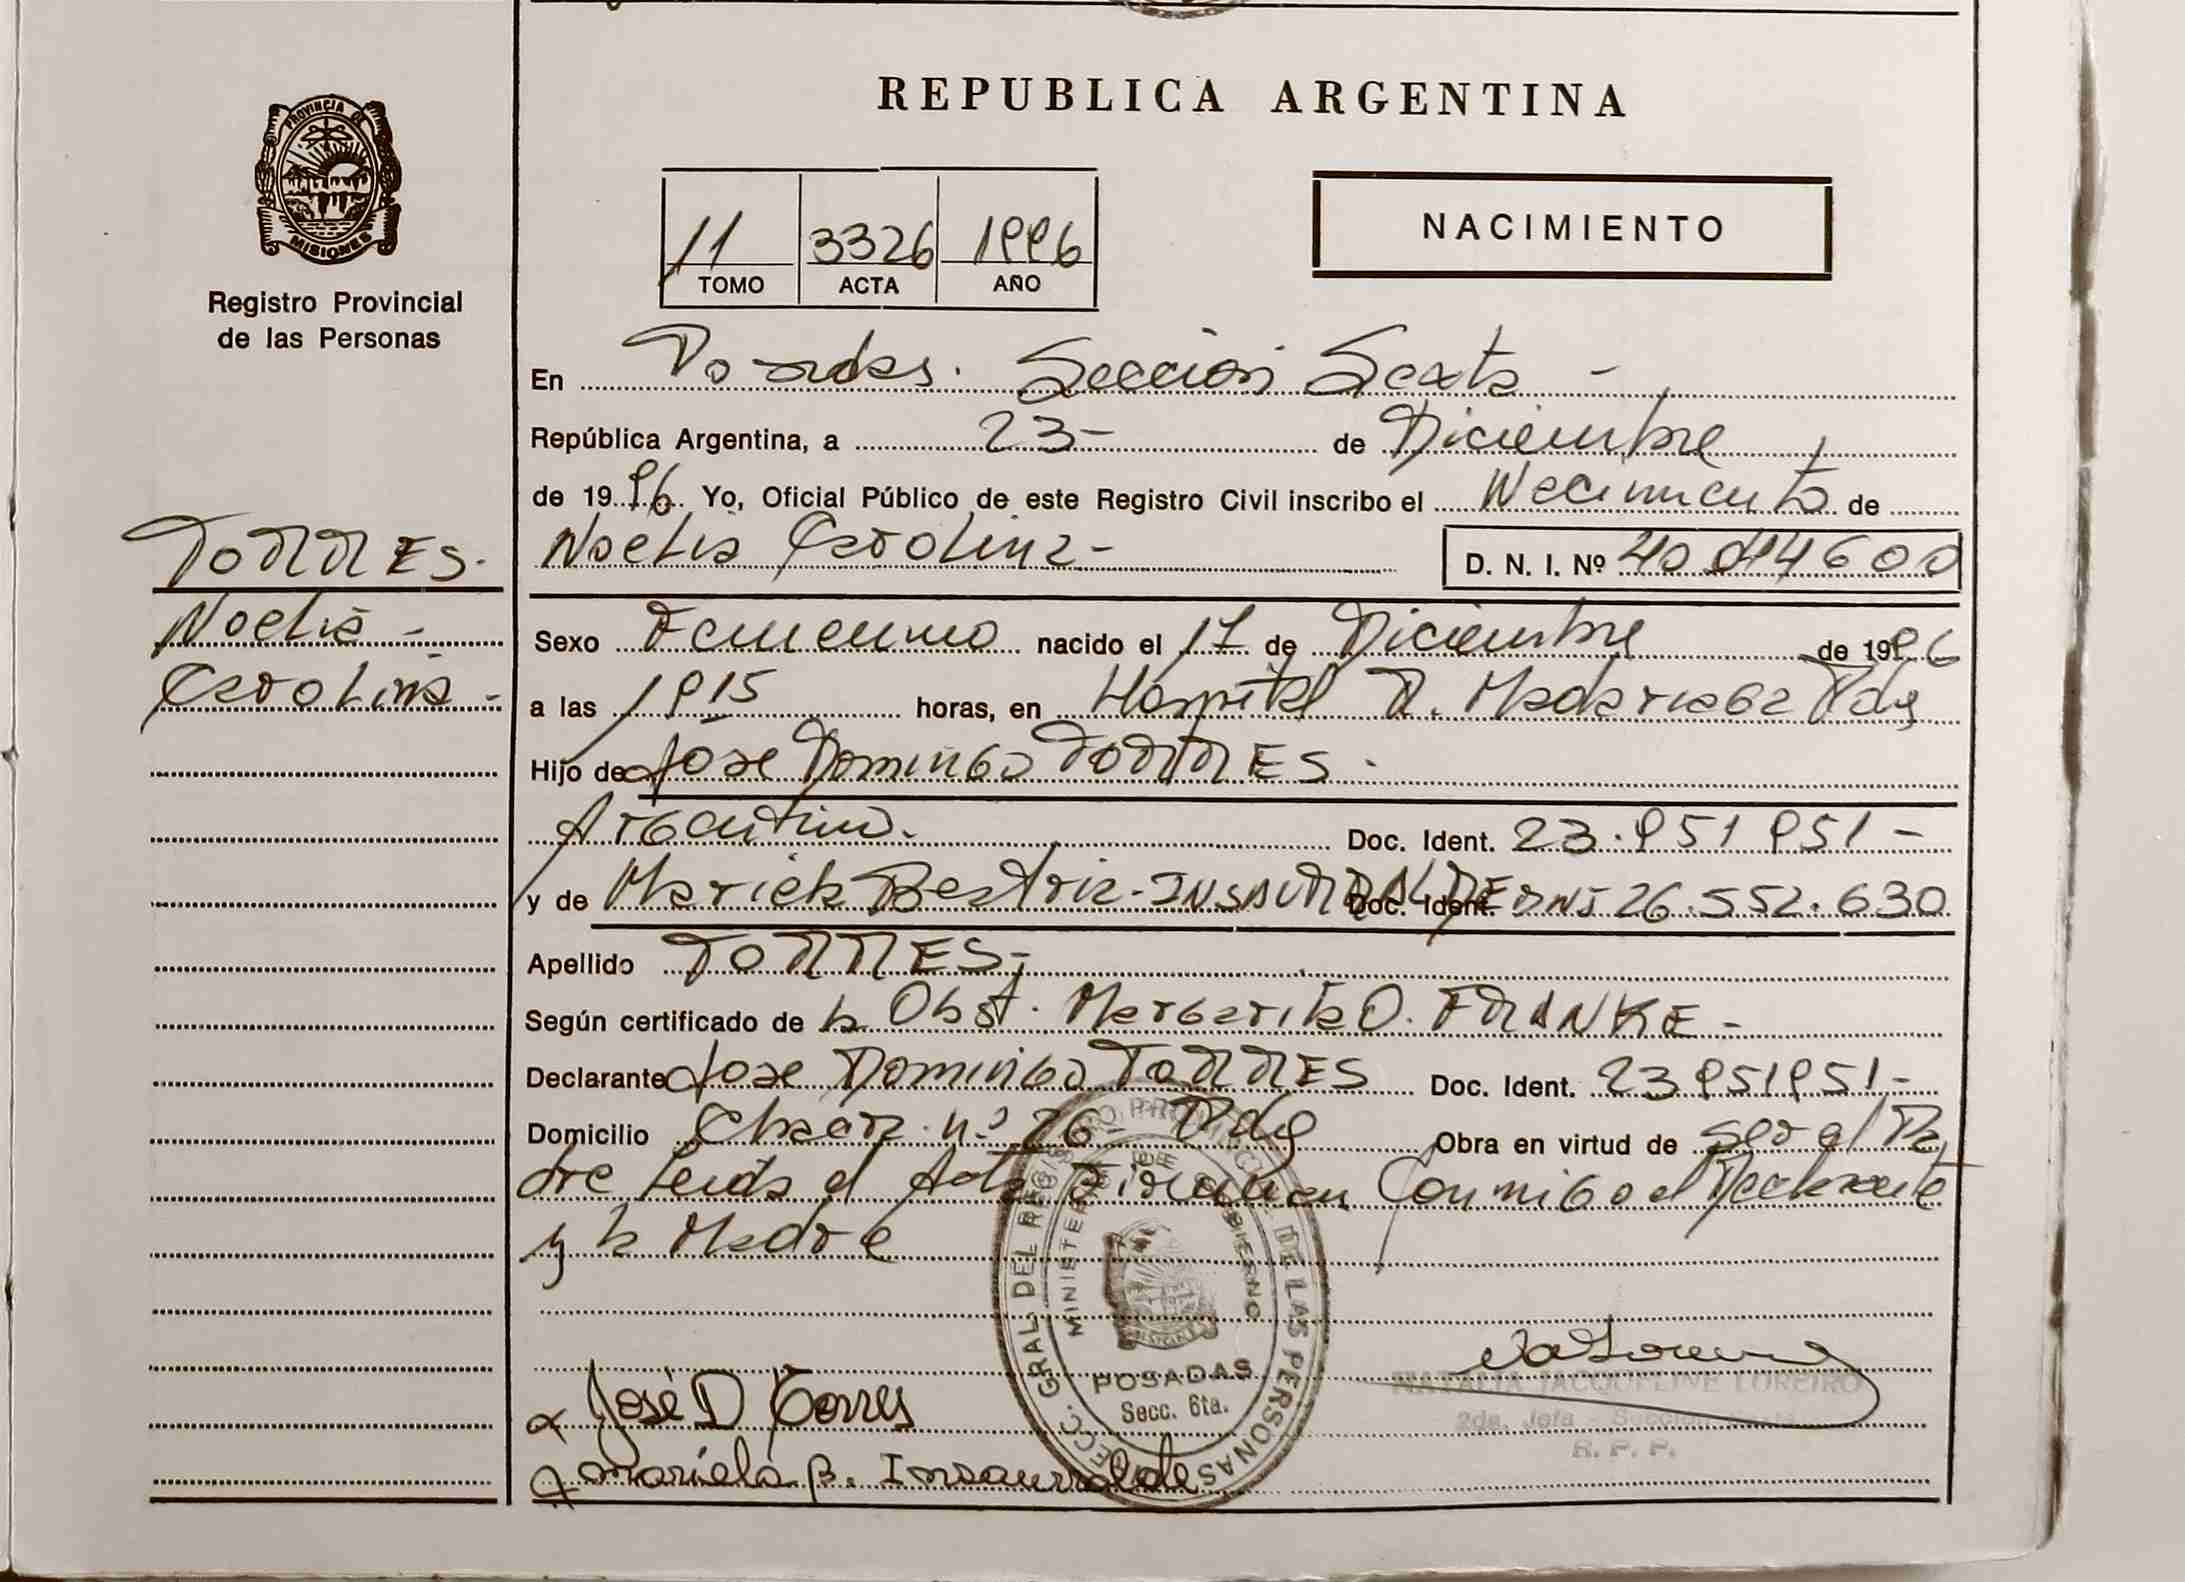 PROVINCIA DE
MISIONES
Registro Provincial
de las Personas
TORRES.
Noelia -
Carolina -
REPUBLICA ARGENTINA
11 3326 1996
TOMO ACTA AÑO
NACIMIENTO
En Posadas. Sección Sexta -
República Argentina, a 23- de Diciembre
de 1996 Yo, Oficial Público de este Registro Civil inscribo el Nacimiento de
Noelia Carolina- D. N. I. Nº 40.014600
Sexo Femenino nacido el 17 de Diciembre de 1996
a las 1915 horas, en Hospital R. Madariaga Pdas
Hijo de Jose Domingo TORRES.
Argentino. Doc. Ident. 23.951951-
y de Mariela Beatriz-INSAURRALDE Doc. Ident. DNI 26.552.630
Apellido TORRES-
Según certificado de la Obst. Margarita O. FRANKE-
Declarante Jose Domingo TORRES Doc. Ident. 23951951-
Domicilio Chacra nº 26- Pdas Obra en virtud de ser el Pa
dre Leida el Acta Firman Conmigo el Declarante
y la Madre
DIRECC. GRAL. DEL REGISTRO PROVINCIAL DE LAS PERSONAS
MINISTERIO DE GOBIERNO
POSADAS
Secc. 6ta.
NATALIA JACQUELINE LOREIRO
2da. Jefa - Sección Sexta
R. P. P.
José D Torres
Mariela B. Insaurralde